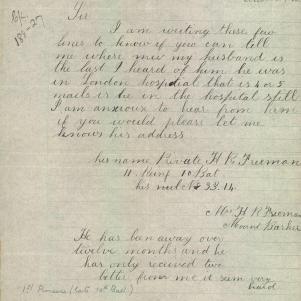 Sir
I am writing these few
lines to know if you can tell
me where mw my husband is
the last I heard of him he was
in London hospidal that is 4 or 5
mails is he in the hospital still
I am anxioux to hear from him
if you would pleass let me
know his address
his name Private H R Freeman
11 Reinf 10 Bat
his
Mrs H R Freeman
Mount Barker
He has ben away over
twelve months and he
has only recived two
letter from me it seem very
haid
1st Pioneers (late 10th Batt)